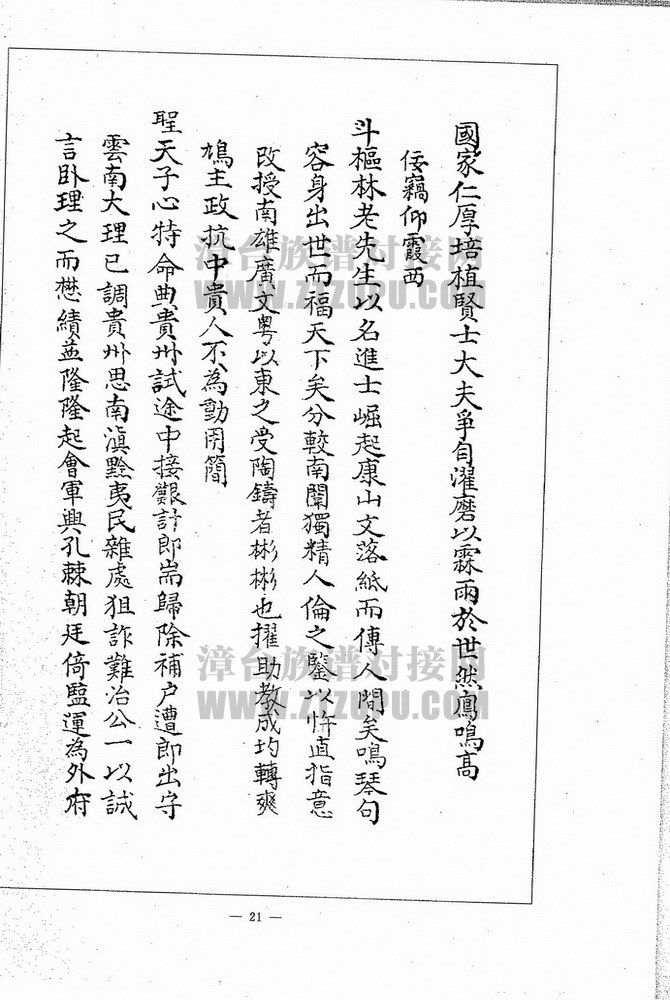 國家仁厚培植賢士大夫爭自濯磨以霖雨於世然鳳鳴高
佞竊仰霞西
斗樞林老先生以名進士崛起康山文落紙而傳人間矣鳴琴句
容身出世而福天下矣分較南闈獨精人倫之鑒以忤直指意
改授南雄廣文粵以東之受陶鑄者彬彬也擢助教成均轉爽
鳩主政抗中貴人不為動用簡
聖天子心特命典貴州試途中接艱訃即耑歸除補户遭即出守
雲南大理已調貴州思南滇黔夷民雜處狙詐難治公一以誠
言卧理之而懋績益隆隆起會軍興孔棘朝廷倚監運為外府
— 21 —
漳台族谱对接网
WWW.ZTZUPU.COM
漳台族谱对接网
WWW.ZTZUPU.COM